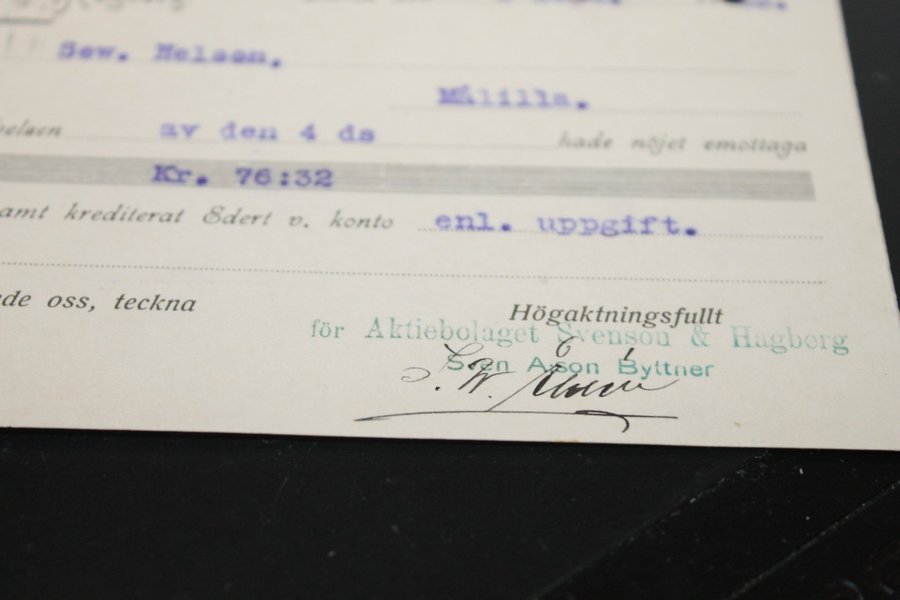 Sew. Nelson,
Målilla.
av den 4 ds hade nöjet emottaga
Kr. 76:32
amt krediterat Edert v. konto enl. uppgift.
de oss, teckna
Högaktningsfullt
för Aktiebolaget Svenson & Hagberg
Sven A:son Byttner
S. W.